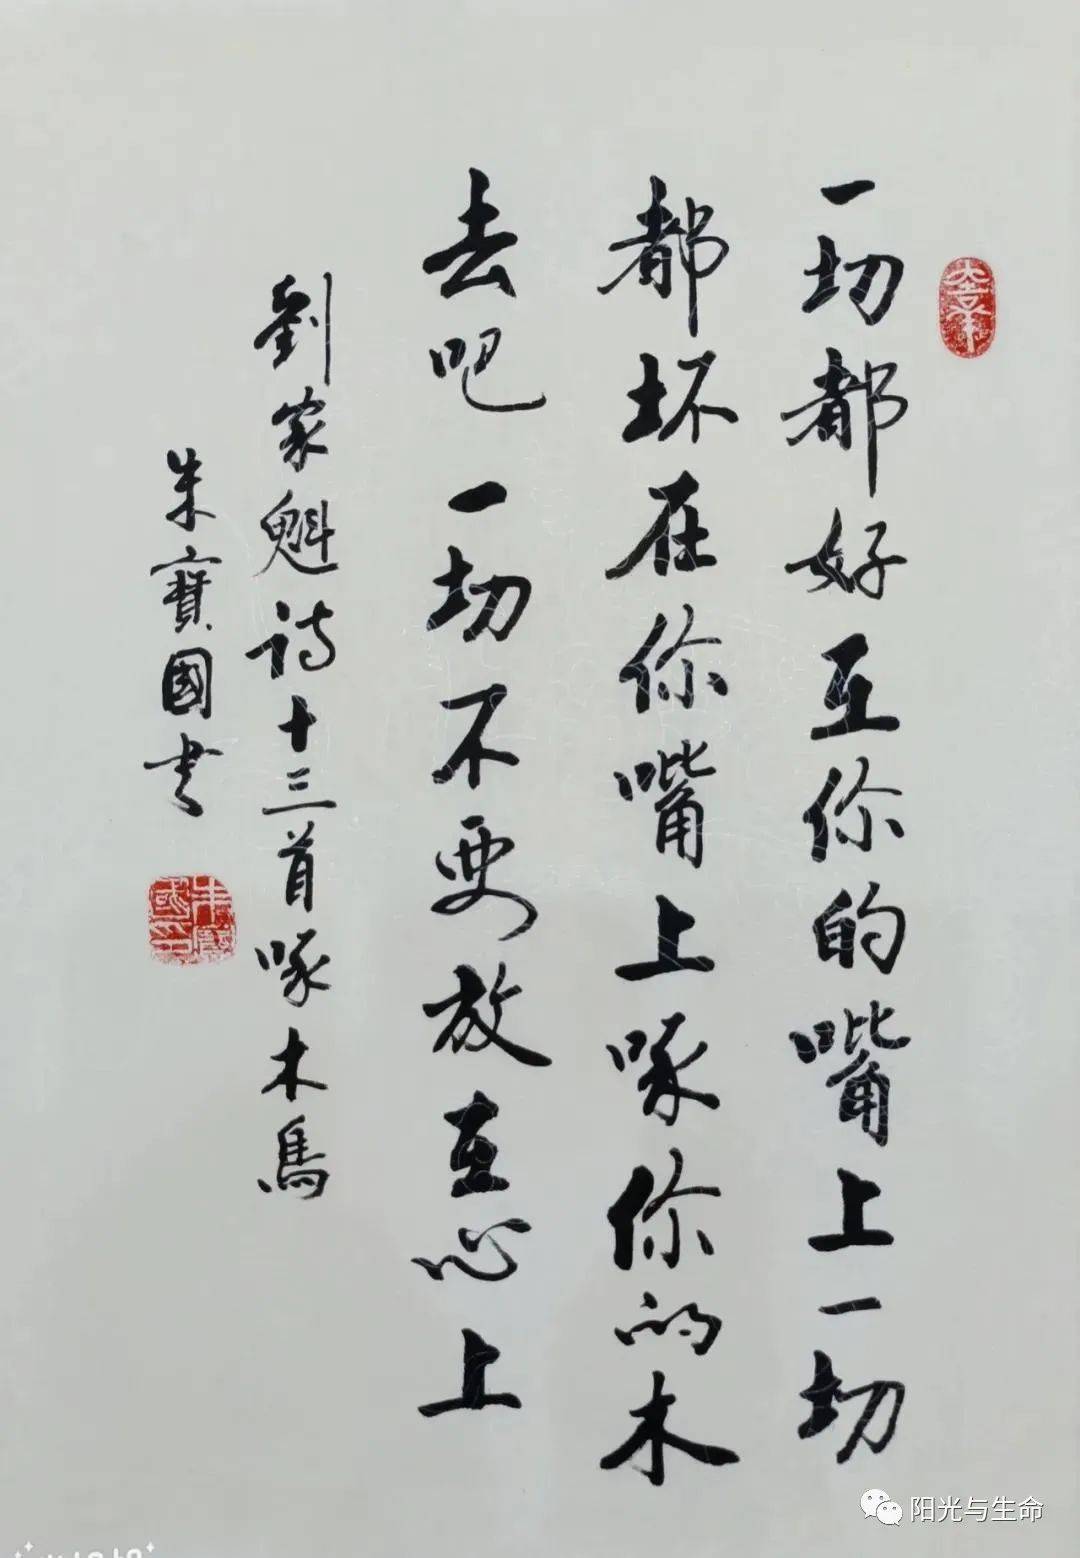 一切都好在你的嘴上一切
都坏在你嘴上啄你的木
去吧一切不要放在心上
劉家魁诗十三首啄木鳥
朱寶國书
阳光与生命